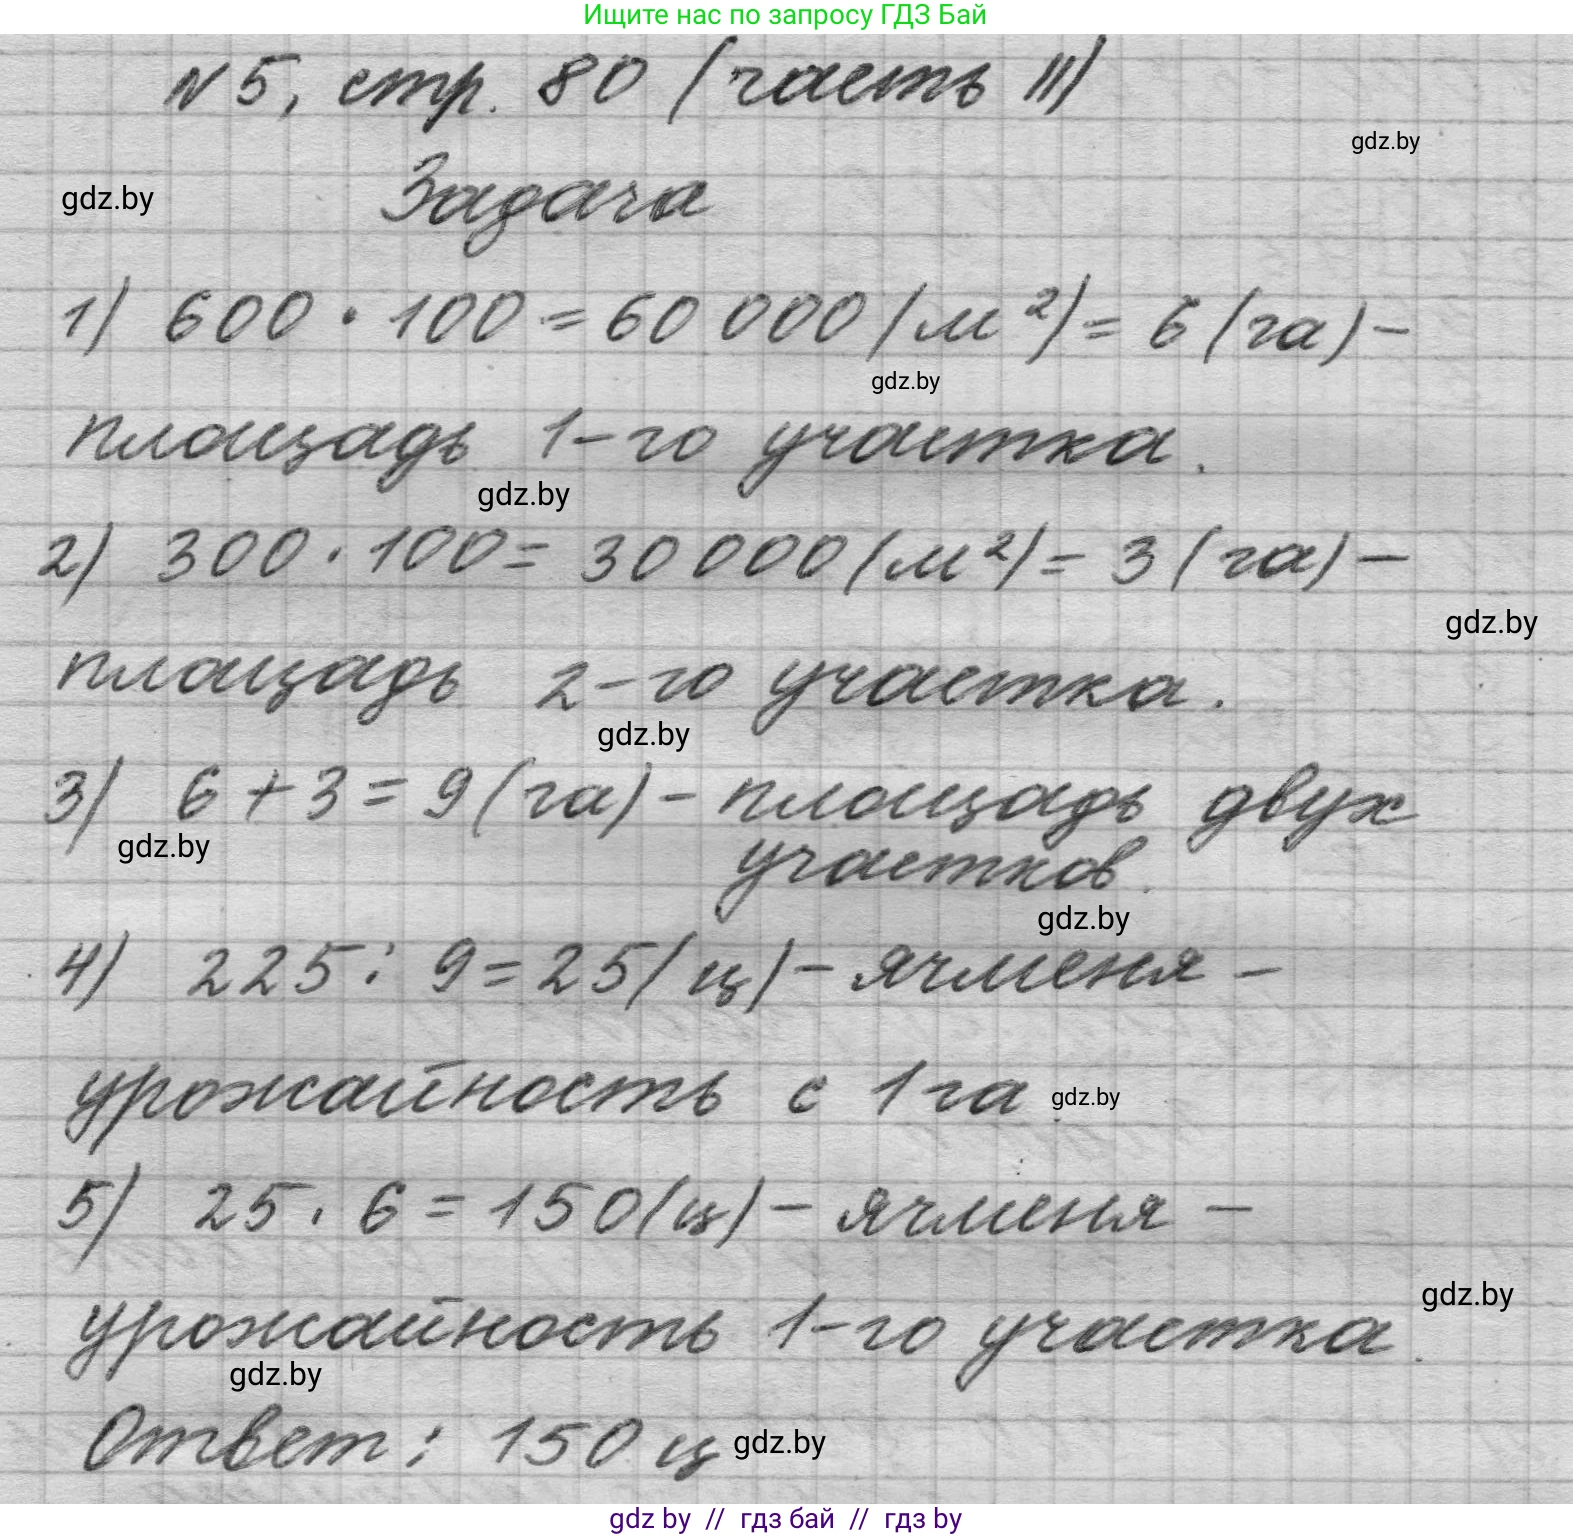 Ищите нас по запросу ГДЗ Бай
№5, стр. 80 (часть II)
gdz.by
gdz.by
Задача
1) 600 · 100 = 60 000 (м²) = 6 (га) –
gdz.by
площадь 1-го участка.
gdz.by
2) 300 · 100 = 30 000 (м²) = 3 (га) –
gdz.by
площадь 2-го участка.
gdz.by
3) 6 + 3 = 9 (га) – площадь двух
gdz.by
участков.
gdz.by
4) 225 : 9 = 25 (ц) – ячменя –
урожайность с 1 га
gdz.by
5) 25 · 6 = 150 (ц) – ячменя –
gdz.by
урожайность 1-го участка.
gdz.by
Ответ: 150 ц
gdz.by
gdz by // гдз бай // gdz by